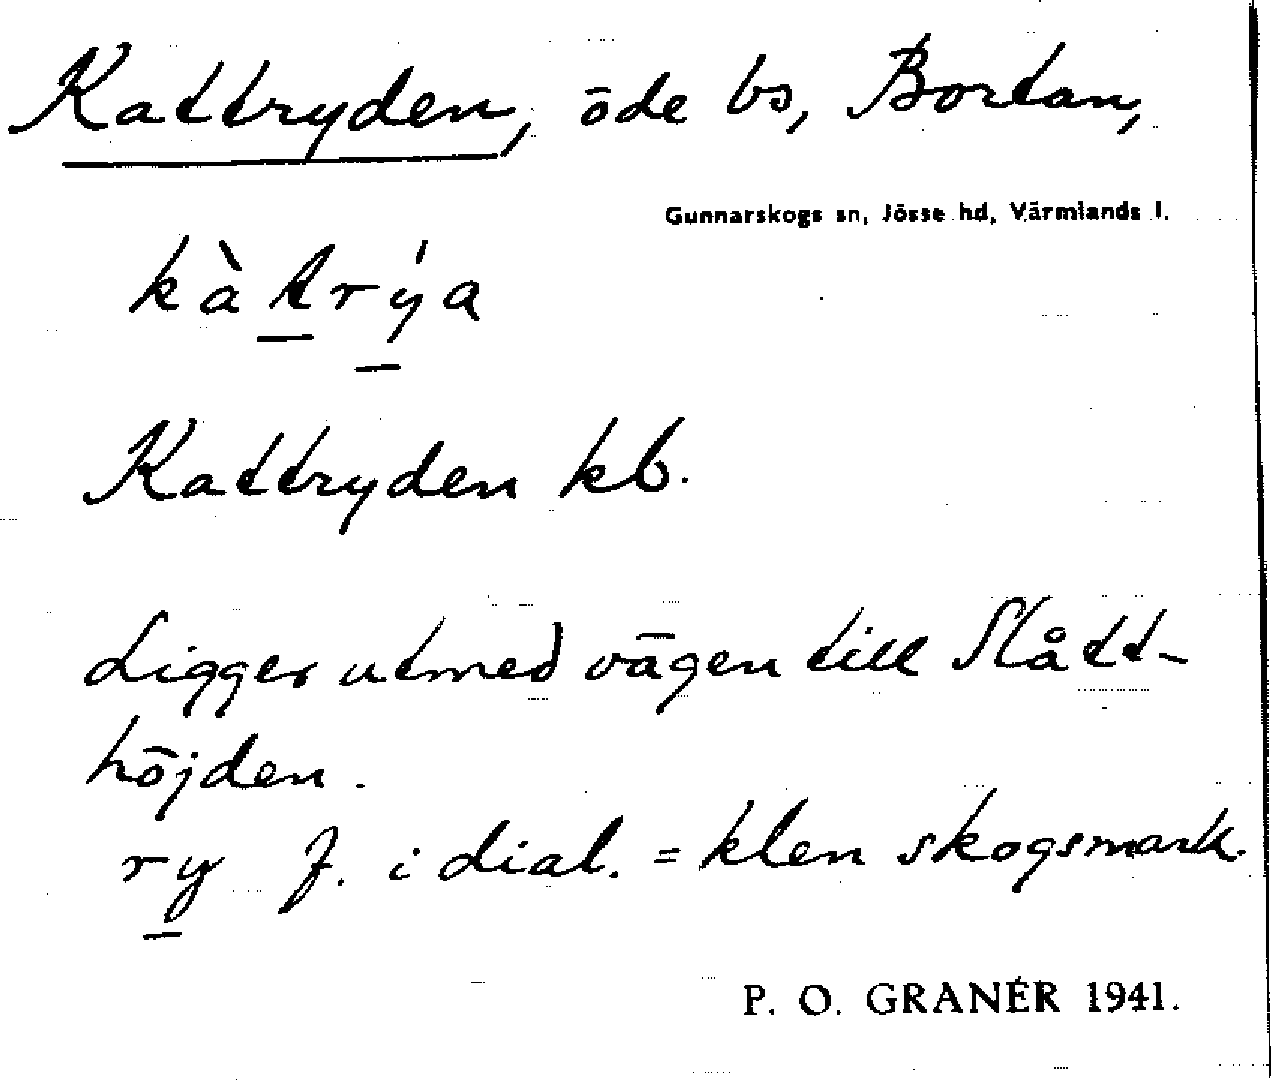 Kattryden, öde bs, Bortan,
Gunnarskogs sn, Jösse hd, Värmlands l.
kàtrýa
Kattryden kb.
Ligger utmed vägen till Slått-
höjden.
ry f. i dial. = klen skogsmark.
P. O. GRANÉR 1941.